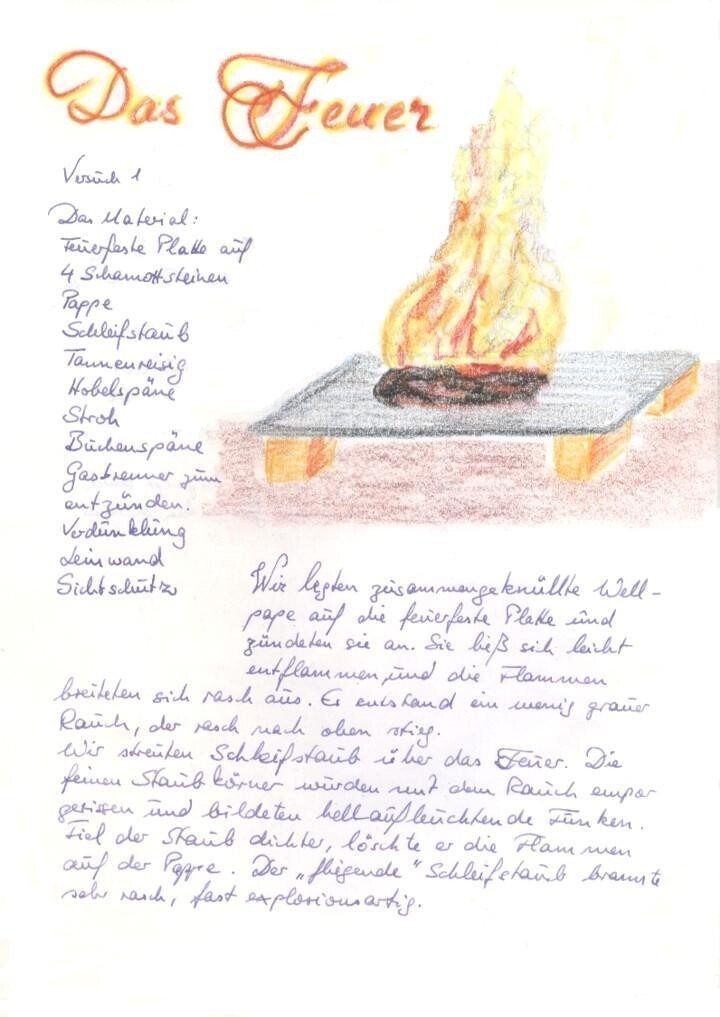 Das Feuer
Versuch 1
Das Material:
Feuerfeste Platte auf
4 Schamottsteinen
Pappe
Schleifstaub
Tannenreisig
Hobelspäne
Stroh
Buchenspäne
Gasbrenner zum
entzünden.
Verdunklung
Leinwand
Sichtschutz
Wir legten zusammengeknüllte Well-
pape auf die feuerfeste Platte und
zündeten sie an. Sie ließ sich leicht
entflammen, und die Flammen
breiteten sich rasch aus. Er entstand ein wenig grauer
Rauch, der rasch nach oben stieg.
Wir streuten Schleifstaub über das Feuer. Die
feinen Staubkörner wurden mit dem Rauch empor
gerissen und bildeten hell aufleuchtende Funken.
Fiel der Staub dichter, löschte er die Flammen
auf der Pappe. Der „fliegende" Schleifstaub brannte
sehr rasch, fast explosionsartig.